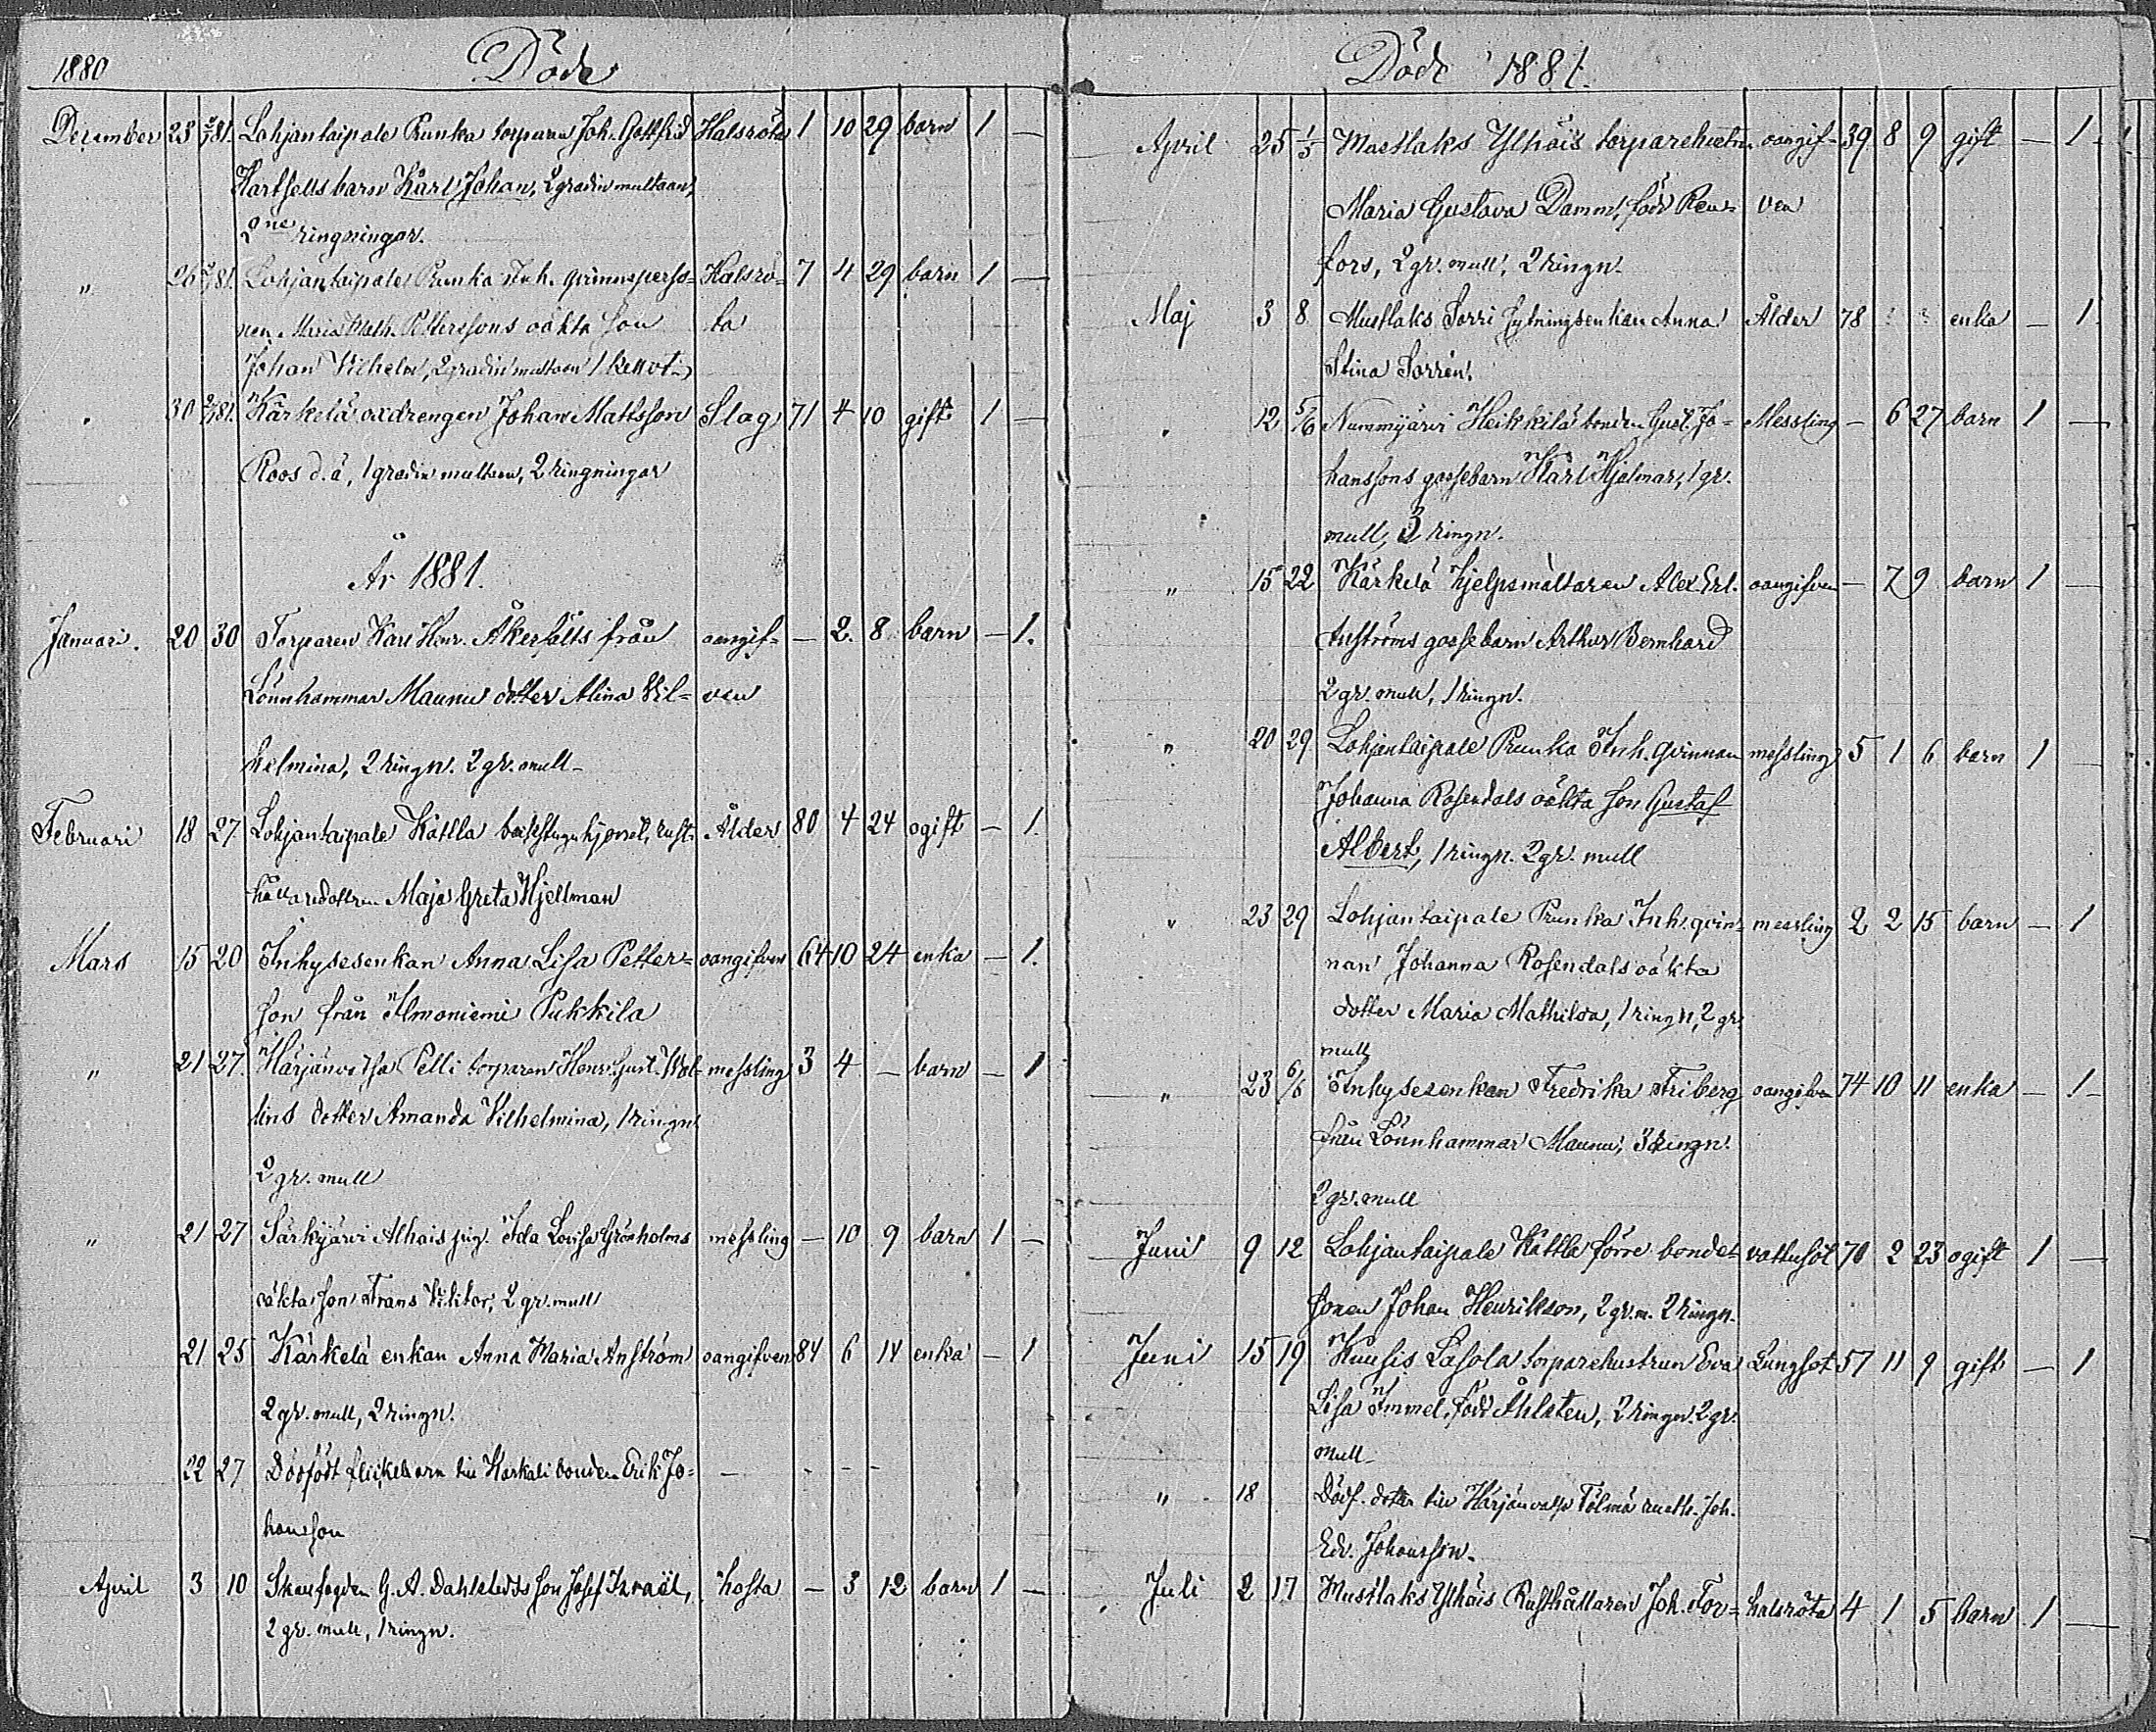 1880 Döde
December 25 2/81. Lohjantaipale Prunka torparen Joh. Gottfrid Halsröta 1 10 29 barn 1 —
barn Karl Johan, 2 gradin multaan,
2ne ringningar.
" 26 2/81. Lohjantaipale Prunka Inh. qvinnsperso- Halsrö- 7 4 29 barn 1 —
nen Maria Math. Petterssons oäkta son ta
Johan Vilhelm, 2 gradin multaan
" 30 2/81. Kärkelä oxdrengen Johan Mattsson Slag 71 4 10 gift 1 —
Roos d.ä, 1 gradin multaan, 2 ringningar
År 1881.
Januari. 20 30 Torparen Karl Henr. Åkerfälts från oangif- — 2. 8 barn — 1.
Lönnhammar Maunu dotter Alina Vil- ven
helmina, 2 ringn. 2 gr. mull
Februari 18 27 Lohjantaipale Kättla rust- Ålder 80 4 24 ogift — 1.
hållaredottren Maja Greta Hjellman
Mars 15 20 Inhysesenkan Anna Lisa Petter- oangifven 64 10 24 enka — 1.
son från Ilmoniemi Pukkila
" 21 27. Härjänvatsa Pelli torparen Henr. Gust. messling 3 4 — barn — 1
lins dotter Amanda Vilhelmina, 1 ringn.
2 gr. mull
" 21 27 Särkjärvi Alhais pig. Ida Lovisa Grönholms messling — 10 9 barn 1 —
oäkta son Frans Viktor, 2 gr. mull
21 25 Kärkelä enkan Anna Maria Anström oangifven 84 6 14 enka — 1
2 gr. mull, 2 ringn.
22 27 Dödfödt flickebarn till Karkali bonden Erik Jo- — - - -
hansson
April 3 10 Skogsfogden G. A. Dahlstedts son Josef Israël, hosta — 3 12 barn 1 —
2 gr. mull, 1 ringn.
Döde 1881.
April 25 1/5 Mustlaks Ylhäis torparehustr. oangif- 39 8 9 gift — 1.
Maria Gustava Damm, född Ren- ven
fors, 2 gr. mull, 2 ringn.
Maj 3 8 Mustlaks Sorri enkan Anna Ålder 78 ? ? enka — 1.
Stina Sorrén.
" 12 5/6 Nummijärvi Heikkilä bonden Gust. Jo- Messling — 6 27 barn 1 —
hanssons gossebarn Karl Hjalmar, 1 gr.
mull, 3 ringn.
" 15 22 Kärkelä hjelpsmältaren Alex. Erl. oangifven — 7 9 barn 1 —
Anströms gossebarn Arthur Bernhard
2 gr. mull, 1 ringn.
" 20 29 Lohjantaipale Prunka Inh. qvinnan messling 5 1 6 barn 1 —
Johanna Rosendals oäkta son Gustaf
Albert, 1 ringn. 2 gr. mull
" 23 29 Lohjantaipale Prunka Inh. qvin- messling 2 2 15 barn — 1
nan Johanna Rosendals oäkta
dotter Maria Mathilda, 1 ringn, 2 gr.
mull
" 23 6/6 Inhysesenkan Fredrika Friberg oangifven 74 10 11 enka — 1 -
från Lönnhammar Maunu, 3 ringn.
2 gr. mull
Juni 9 12 Lohjantaipale Kättla förre bonde- vattusot 70 2 23 ogift 1 —
sonen Johan Henriksson, 2 gr. m. 2 ringn.
Juni 15 19 Kuusis Lasola torparehustrun Eva Lungsot 57 11 9 gift — 1
Lisa Immel, född Åhlsten, 2 ringn. 2 gr.
mull
" 18 Dödf. dotter till Härjänvatsa Tölmä Joh.
Edv. Johansson.
Juli 2 17 Mustlaks Ylhäis Rusthållaren Joh. For- halsröta 4 1 5 barn 1 —